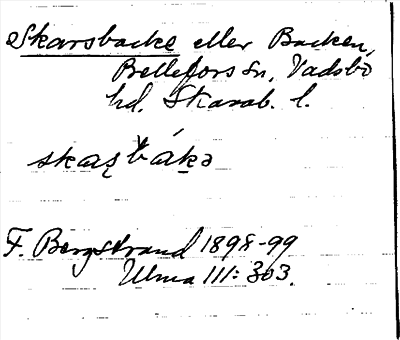 Skarsbacke eller Backen,
Bellefors sn, Vadsbo
hd. Skarab. l.
skaʂbákə
F. Bergstrand 1898-99
Ulma 111: 303.